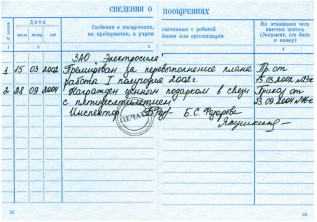 СВЕДЕНИЯ О ПООЩРЕНИЯХ
№ записи
Дата
число
месяц
год
Сведения о поощрениях,
связанных с работой
на предприятии, в
или организации
На основании чего
внесена запись
(документ, его дата
и номер)
1
2
3
4
ЗАО "Электросила"
1 15 03 2002 Премирован за перевыполнение плана Пр. от
работа I полугодие 2002г. 15.03.2002
2 28 09 2004 Награжден ценным подарком в связи Приказ от
с пятидесятилетием 23.09.2004
Инспектор Б.С. Федорова
ПЕЧАТЬ
22
23